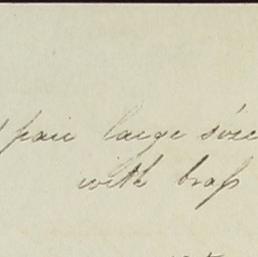 pair large size
with brass